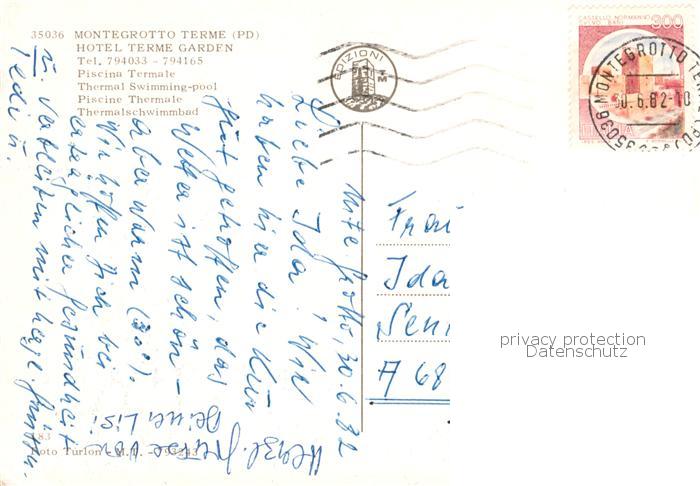 35036 MONTEGROTTO TERME (PD)
HOTEL TERME GARDEN
Tel. 794033 - 794165
Piscina Termale
Thermal Swimming-pool
Piscine Thermale
Thermalschwimmbad
EDIZIONI
CASTELLO NORMANNO
SVEVO BARI
300
35036 MONTEGROTTO
30.6.82-10
Grotto, 30.6.82
Liebe Ida! Wir
haben hier die Kur
gut getroffen, das
Wetter ist schön -
aber warm (30°).
Wir hoffen Dich bei
Gesundheit
u. verbleiben mit Grüßen
Fedi u.
Herzl. Grüsse von
Deiner Lisi
Frau
Ida
A 68
83
Foto Turlon - M.T. - 793243
privacy protection
Datenschutz